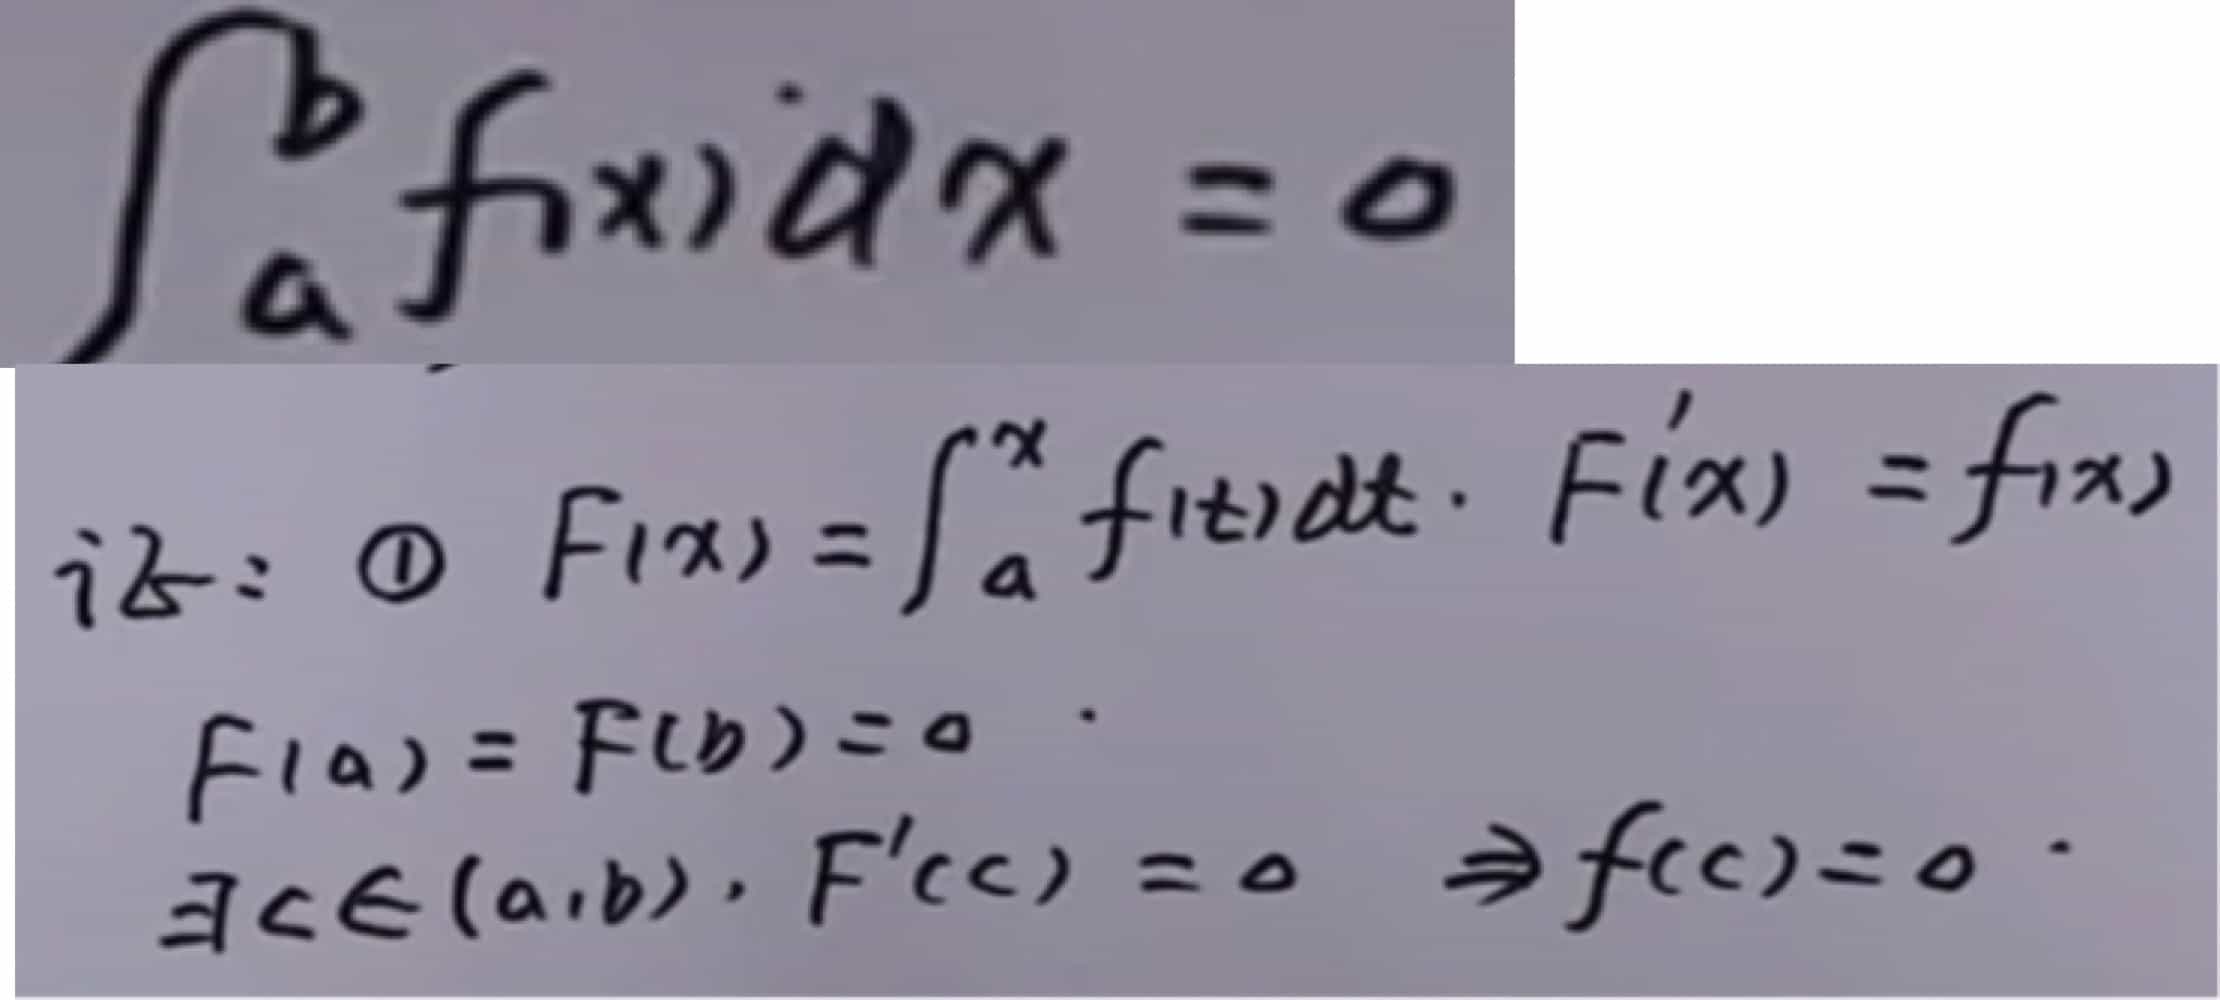 ∫ₐᵇ f(x)dx = 0
证: ① F(x) = ∫ₐˣ f(t)dt. F'(x) = f(x)
F(a) = F(b) = 0.
∃c∈(a,b). F'(c) = 0 ⇒ f(c) = 0.